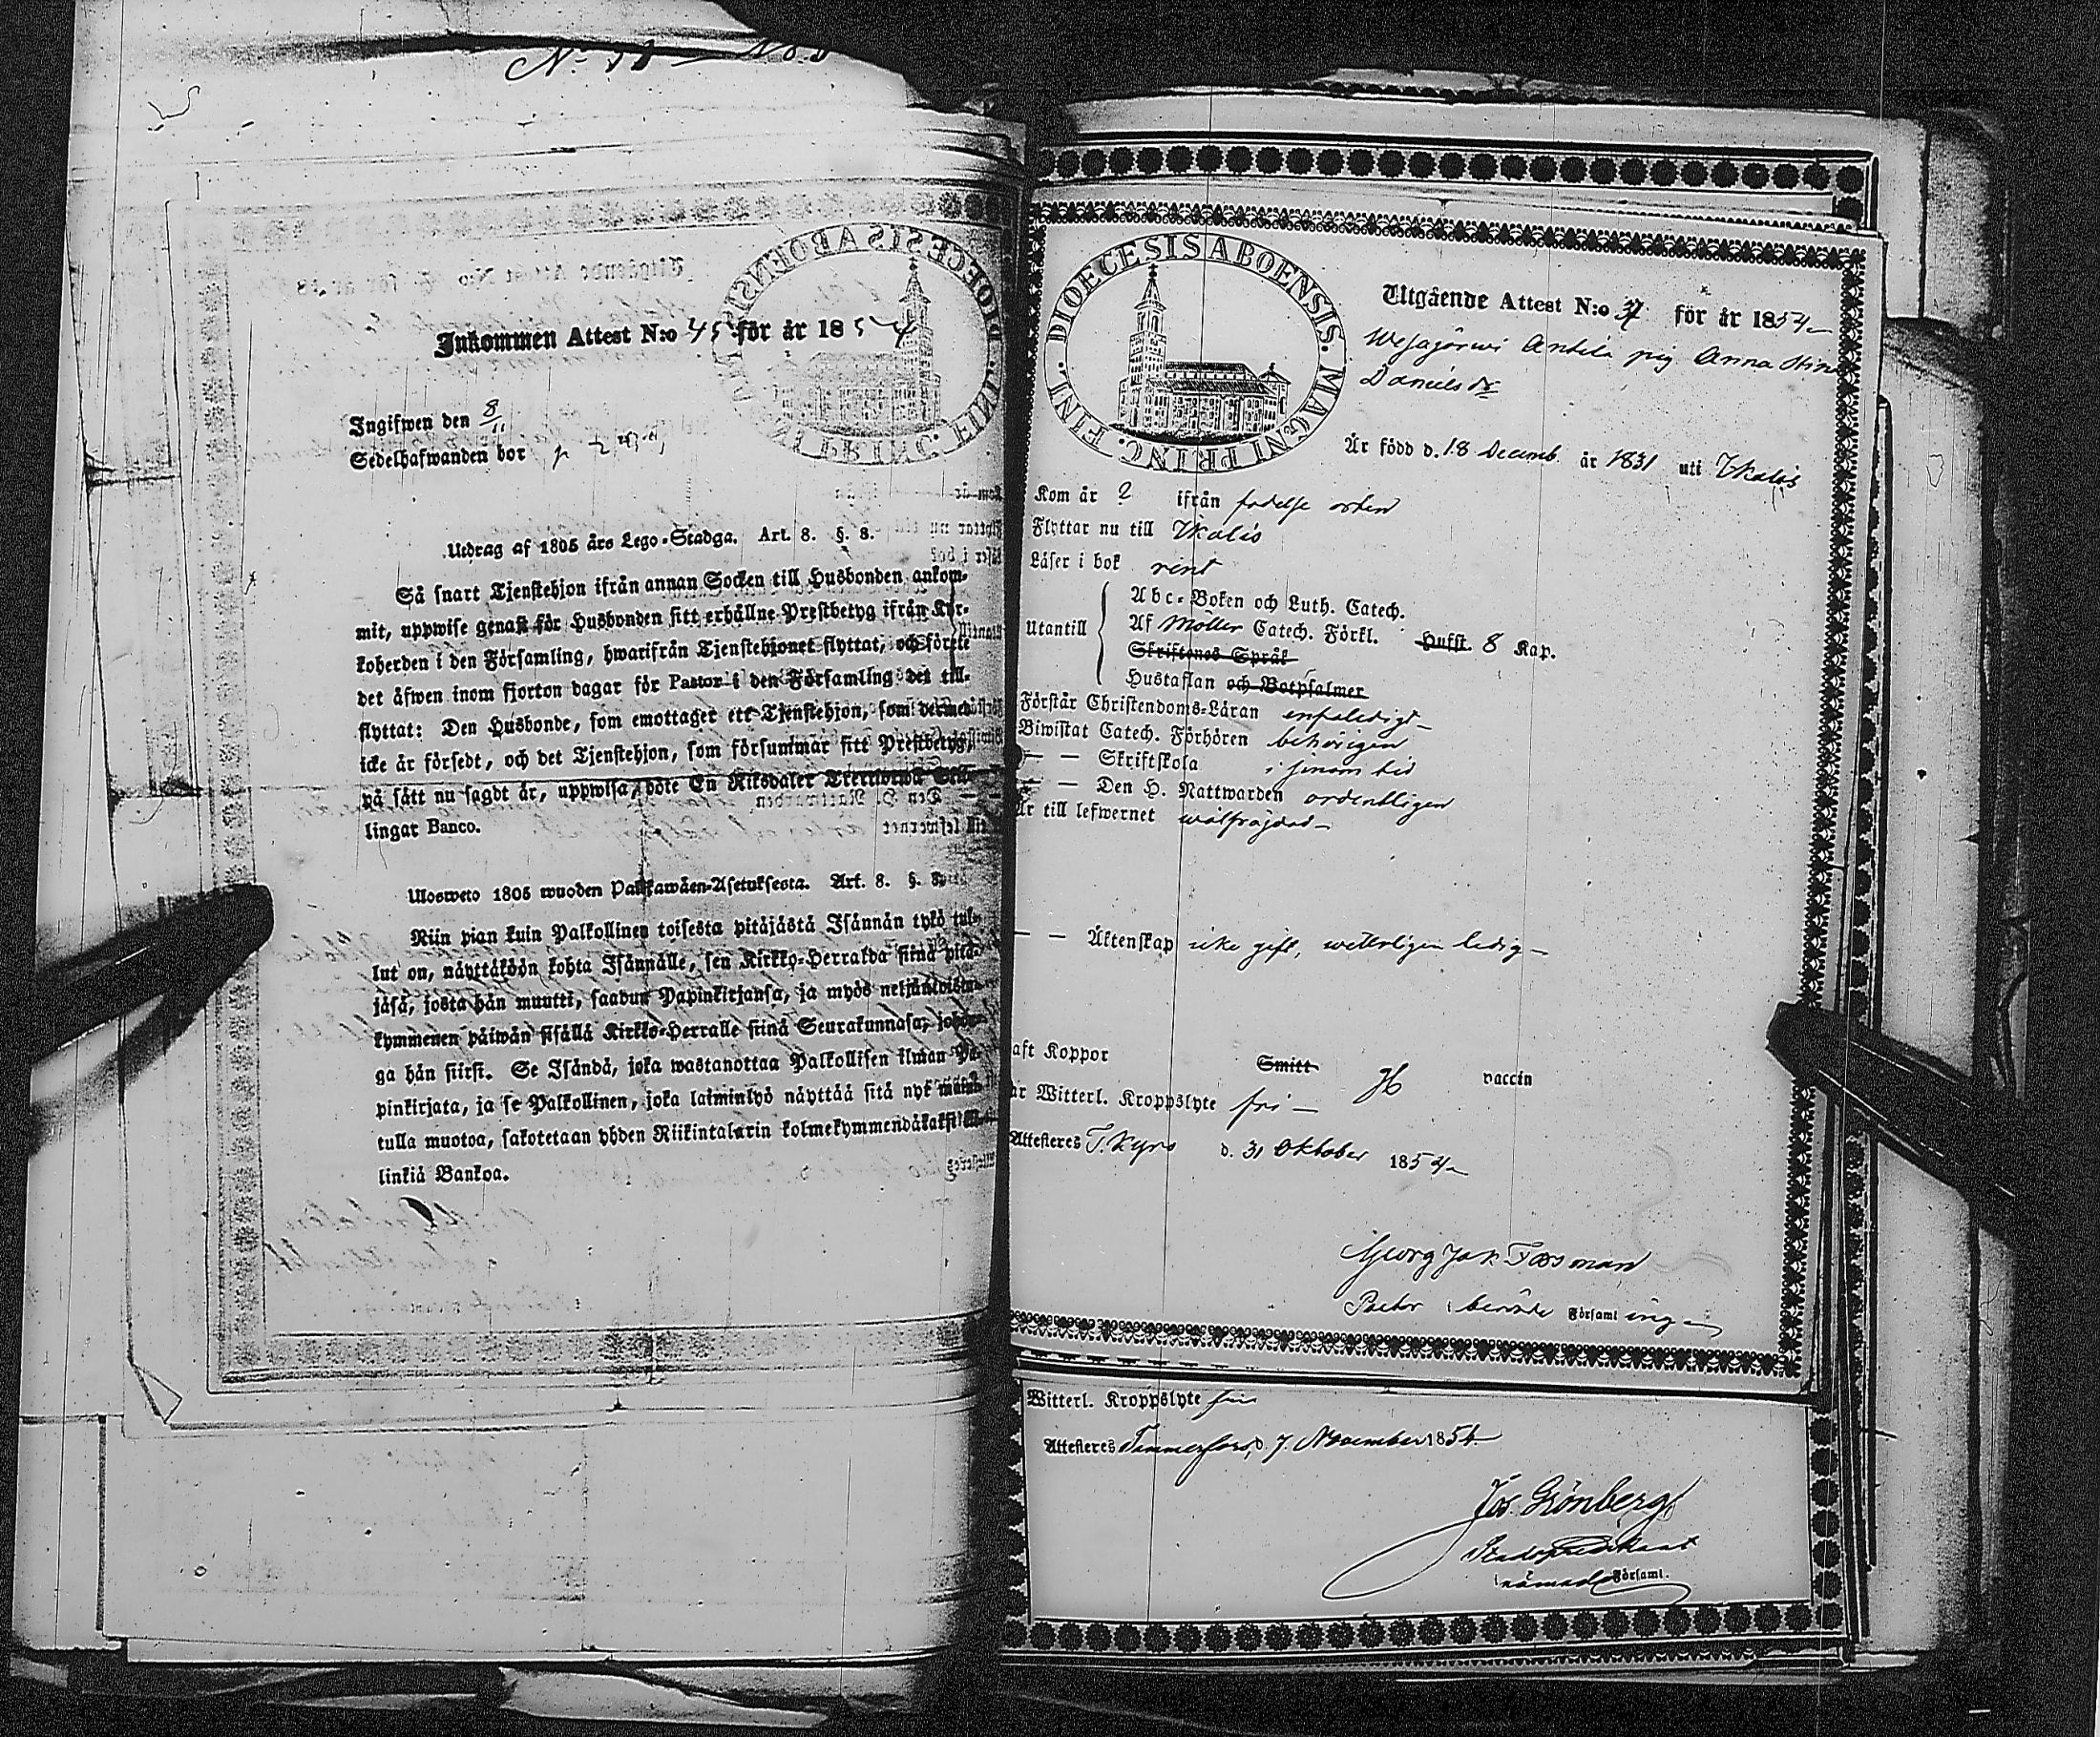 Inkommen Attest N:o 45 för år 1854
Ingifwen den 8/11
Sedelhafwanden bor
Utdrag af 1805 års Lego-Stadga. Art. 8. §. 8.
Så snart Tjenstehjon ifrån annan Socken till Husbonden ankom-
mit, uppwise genast för Husbonden sitt erhållne Prestbetyg ifrån Kyr-
koherden i den Församling, hwarifrån Tjenstehjonet flyttat, och förete
det äfwen inom fjorton dagar för Pastor i den Församling det till-
flyttat: Den Husbonde, som emottager ett Tjenstehjon, som dermed
icke är försedt, och det Tjenstehjon, som försummar sitt Prestbetyg,
på sätt nu sagdt är, uppwisa, böte En Riksdaler Trettiotwå Skil-
lingar Banco.
Ulosweto 1805 wuoden Palkkawäen-Asetuksesta. Art. 8. §. 8.
Niin pian kuin Palkollinen toisesta pitäjästä Isännän tykö tul-
lut on, näyttäköön kohta Isännälle, sen Kirkko-Herralda siinä pitä-
jäsä, josta hän muutti, saadun Papinkirjansa, ja myös neljäntoista-
kymmenen päiwän sisällä Kirkko-Herralle siinä Seurakunnasa, johon-
ga hän siirsi. Se Isändä, joka wastanottaa Palkollisen ilman Pa-
pinkirjata, ja se Palkollinen, joka laiminlyö näyttää sitä nyt mainit-
tulla muotoa, sakotetaan yhden Riikintalarin kolmekymmendäkaksi kil-
linkiä Bankoa.
DIOECESIS ABOENSIS. MAGNI PRINC. FINL.
Utgående Attest N:o 37 för år 1854
Wesajärwi Anttila pig Anna Stina
Danielsdr
Är född d. 18 Decemb. år 1831 uti Ikalis
Kom år 2 ifrån födelse orten
Flyttar nu till Ikalis
Läser i bok rent
Utantill
Abc-Boken och Luth. Catech.
Af Möller Catech. Förkl. Hufst. 8 Kap.
Skriftenes Språk
Hustaflan och Botpsalmer
Förstår Christendoms-Läran enfaldigt
Biwistat Catech. Förhören behörigen
— — Skriftskola i sinom tid
— — Den H. Nattwarden ordentligen
Är till lefwernet wälfräjdad
— — Äktenskap icke gift, weterligen ledig
aft Koppor Smitt vaccin
ar Witterl. Kroppslyte fri
Attesteres T. Kyro d. 31 Oktober 1854
Georg Jak Fosman
Pastor i berörde Församlingen
Witterl. Kroppslyte fri
Attesteres Tammerfors, d. 7. November 1854
Jos. Grönberg
Stadspredikant
i nämnde Församl.